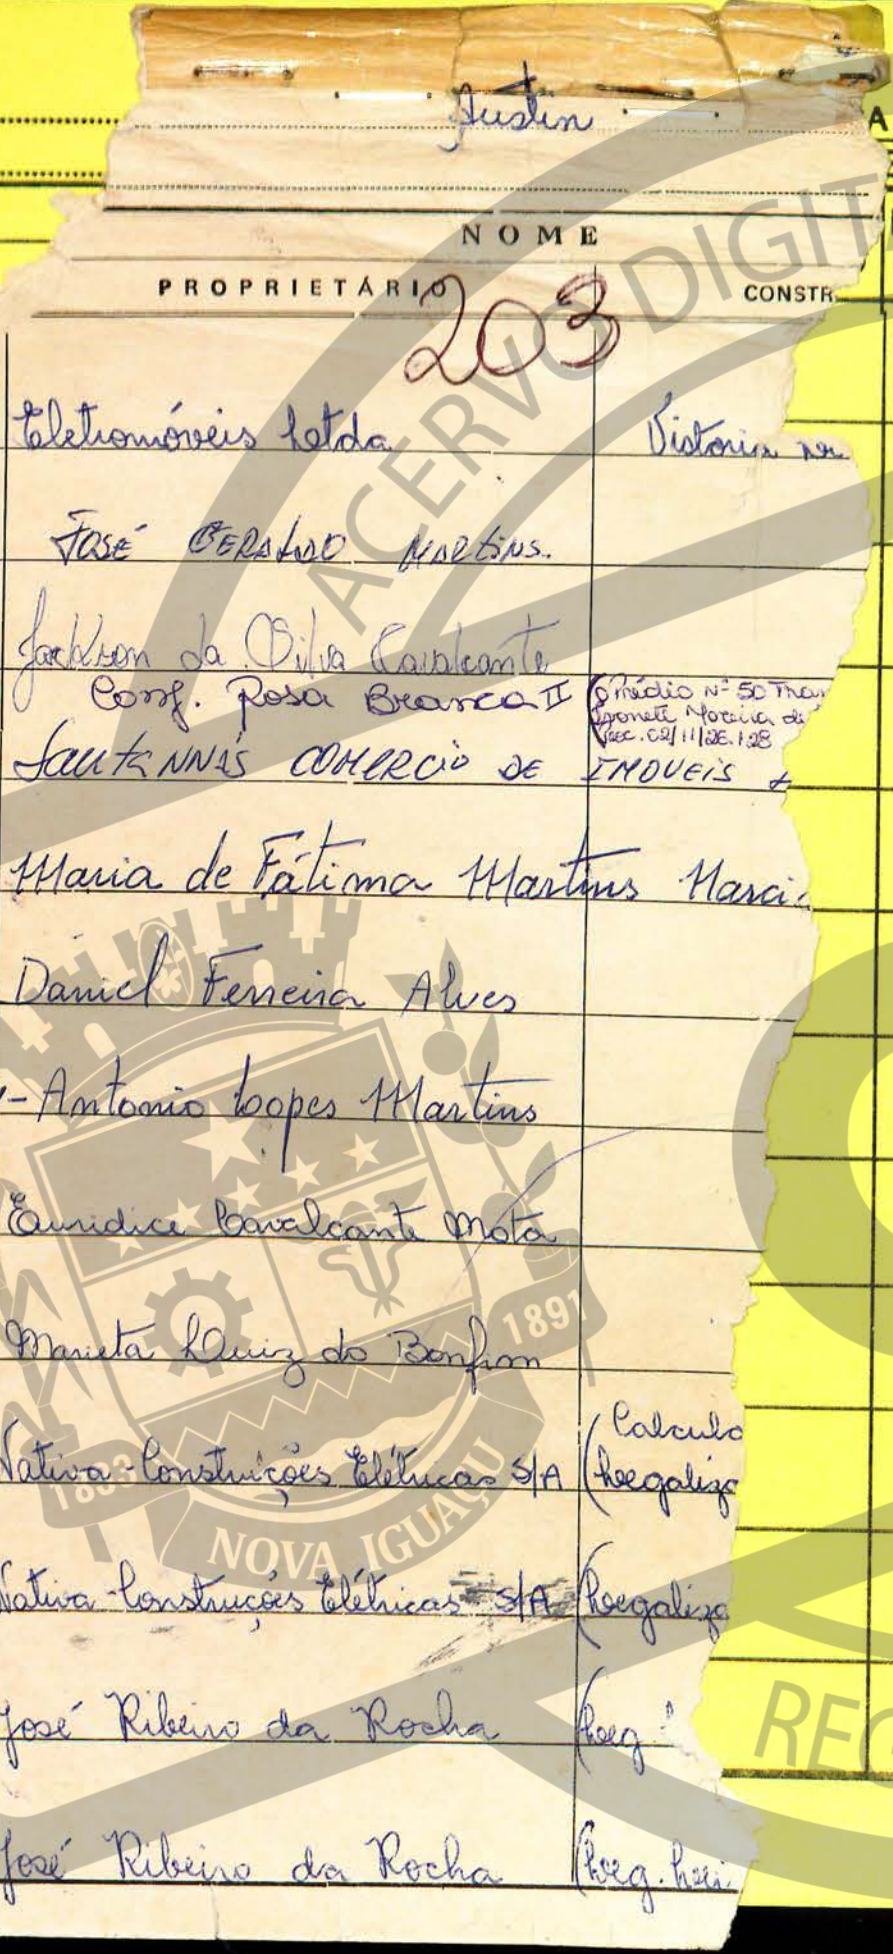 Austin
A
NOME
PROPRIETÁRIO CONSTR
203
Eletromóveis Letda Vistoria
JOSÉ GERALDO MARTINS.
Jackson da Silva Cavalcante
Conj. Rosa Branca II (Prédio Nº 50
Ivonete Moreira de
SANTANNAS COMERCIO DE IMOVEIS
Maria de Fátima Martins
Daniel Ferreira Alves
- Antonio Lopes Martins
Euridice Cavalcante Mota
Marieta Luiz do Bonfim
Calculo
Nativa-Construições Elétricas S/A (Leegaliza
Nativa-Construções Elétricas S/A (Leegaliza
José Ribeiro da Rocha (Leeg.
José Ribeiro da Rocha (Leeg.
ACERVO DIGIT
1891
1833
NOVA IGUAÇU
REG